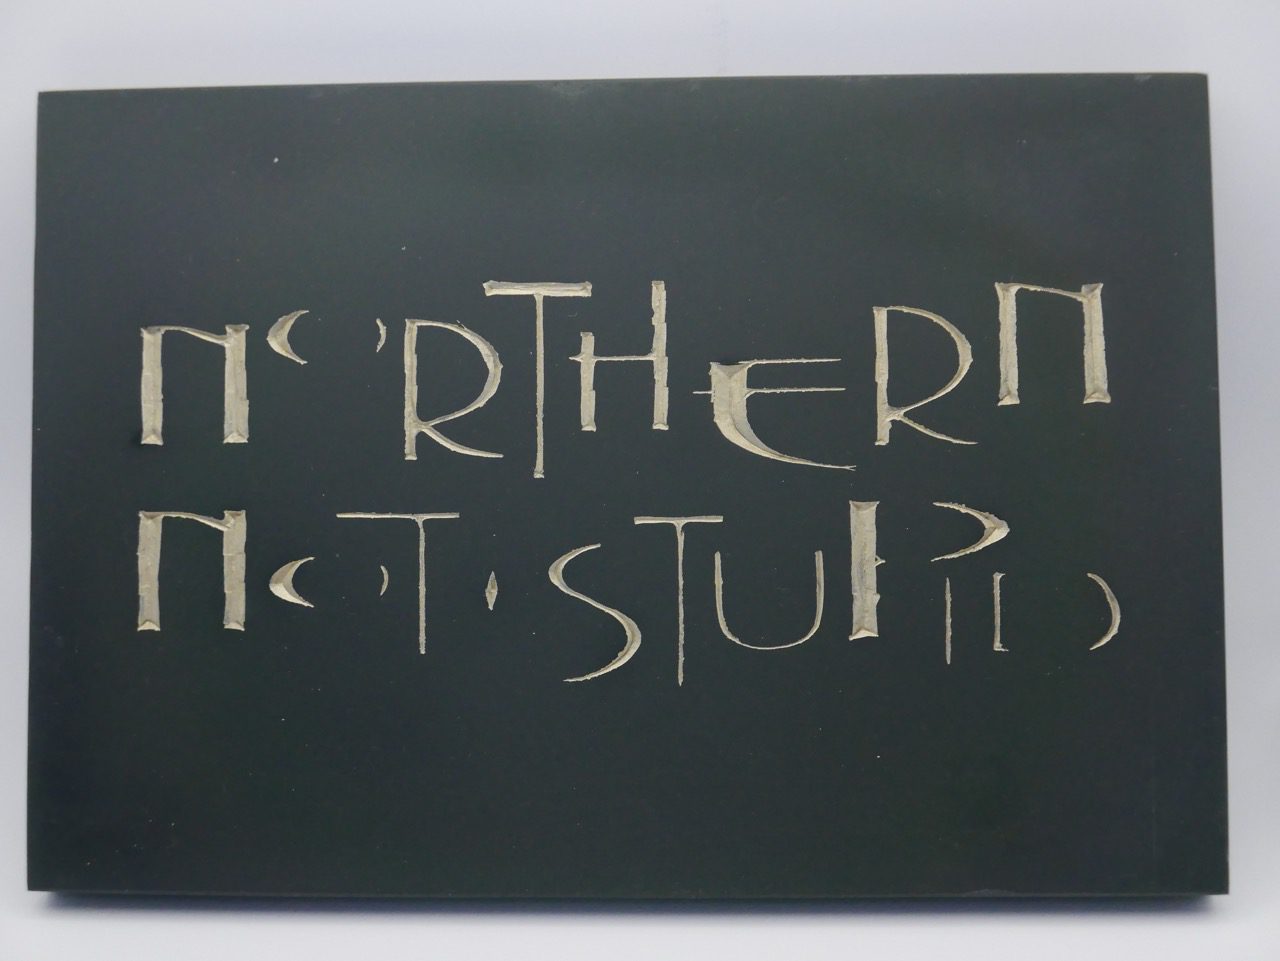 NORTHERN
NOT·STUPID